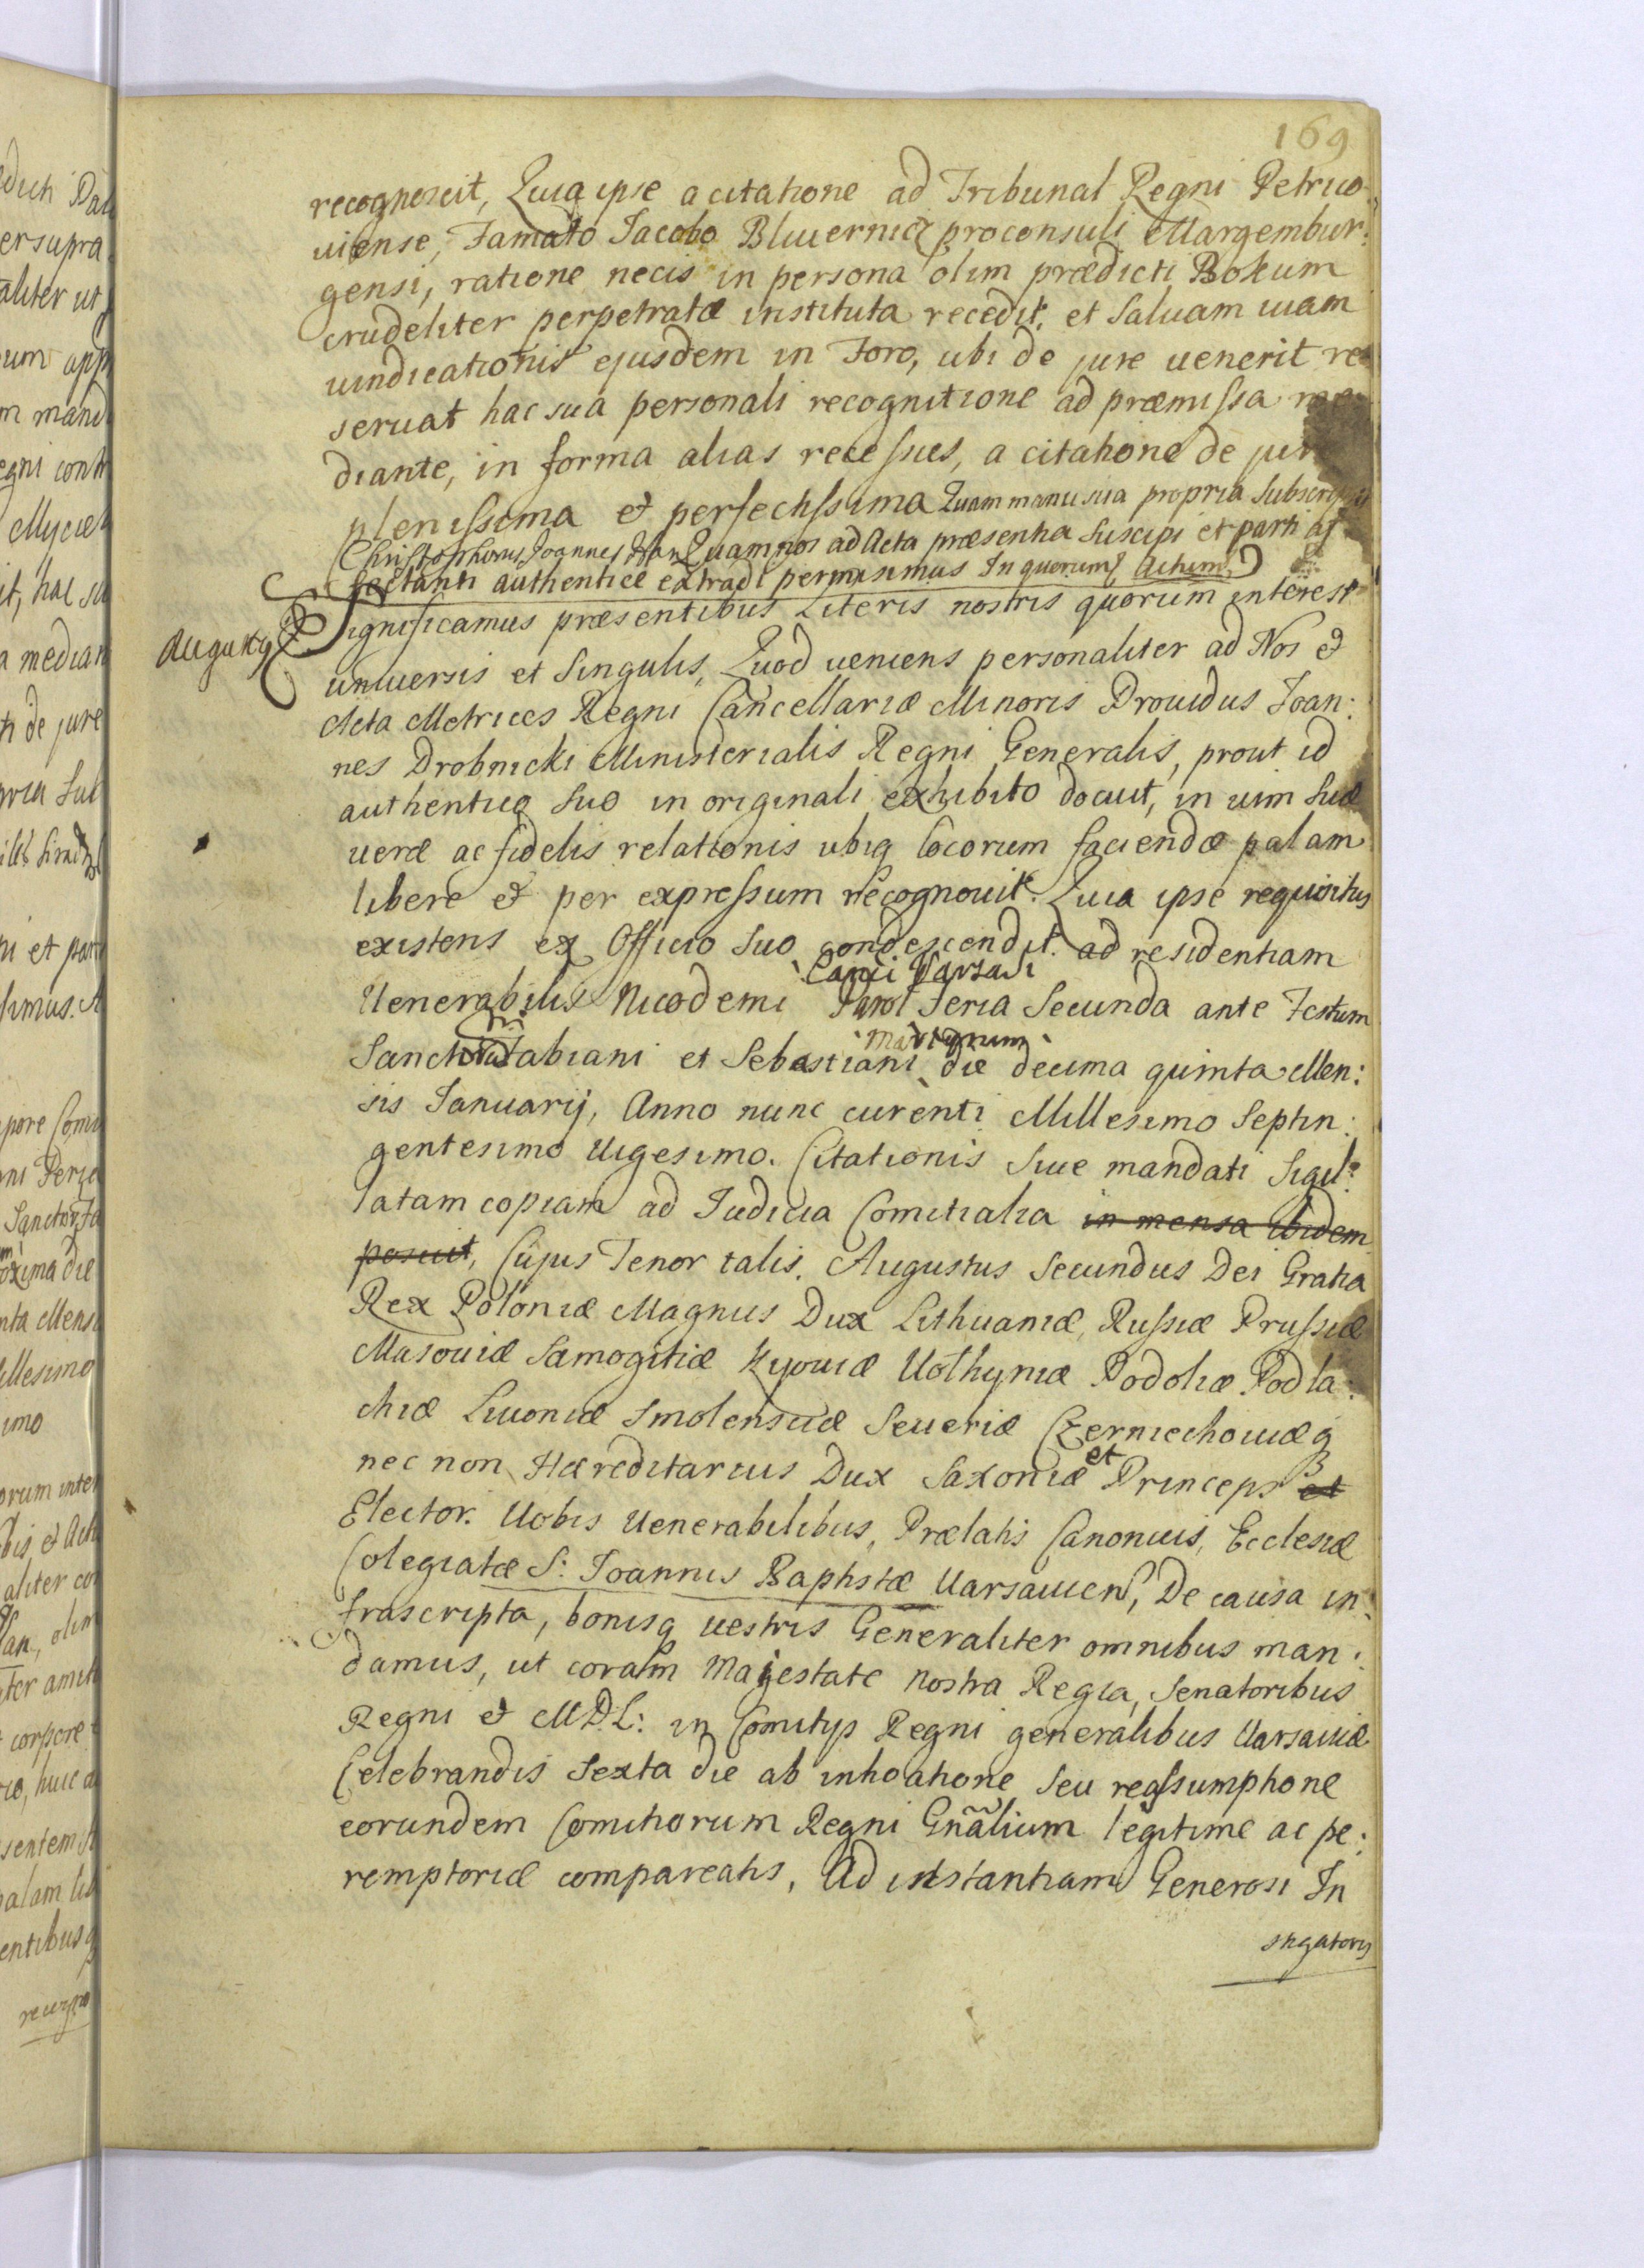 169
recognoscit, Quia ipse a citatione ad Tribunal Regni Petrico
uiense, Famato Jacobo proconsuli Margembur:
gensi, ratione necis in persona olim prædicti Bokum
crudeliter perpetratæ instituta recedit, et Saluam uiam
uindicationis ejusdem in Foro, ubi de jure uenerit re
seruat hac sua personali recognitione ad præmissa me
diante, in forma alias recessus, a citatione de jure
plenissima et perfectissima Quam manu sua propria Subscripsit
Christophorus Joannes Quam nos ad Acta præsentia Suscipi et parti af
fectanti authentice extradi permisimus In quorum Actum
Significamus præsentibus Literis nostris quorum interest
uniuersis et Singulis, Quod ueniens personaliter ad Nos et
Acta Metrices Regni Cancellariæ Minoris Prouidus Joan:
nes Drobnicki Ministerialis Regni Generalis, prout id
authentico Suo in originali exhibito docuit, in uim Suæ
ueræ ac fidelis relationis ubiq locorum faciendæ palam
libere et per expressum recognouit. Quia ipse requisitus
existens ex Officio Suo condescendit ad residentiam
Canci Varsaui
Uenerabilis Nicodemi Feria Secunda ante Festum
Martyrum
Sanctorum Fabiani et Sebastiani die decima quinta Men:
sis Januarij, Anno nunc curenti Millesimo Septin:
gentesimo Uigesimo. Citationis Siue mandati Sigil:
latam copiam ad Judicia Comitialia in mensa ibidem
posuit, Cujus Tenor talis. Augustus Secundus Dei Gratia
Rex Poloniæ Magnus Dux Lithuaniæ, Russiæ Prussiæ
Masouiæ Samogitiæ Kyouiæ Uolhyniæ Podoliæ Podla:
chiæ Liuoniæ Smolensciæ Seueriæ Czerniechouiæq
nec non Hæreditarius Dux Saxoniæ et Princeps et
Elector. Uobis Uenerabilibus, Prælatis Canonicis, Ecclesiæ
Colegiatæ S: Joannis Baptistæ Uarsauien, De causa in
frascripta, bonisq uestris Generaliter omnibus man:
damus, ut coram Majestate nostra Regia, Senatoribus
Regni et M.D.L: in Comitijs Regni generalibus Uarsauiæ
Celebrandis Sexta die ab inhoatione Seu reassumptione
eorundem Comitiorum Regni Gnãlium legitime ac pe:
remptorie compareatis, Ad instantiam Generosi In
stigatoris